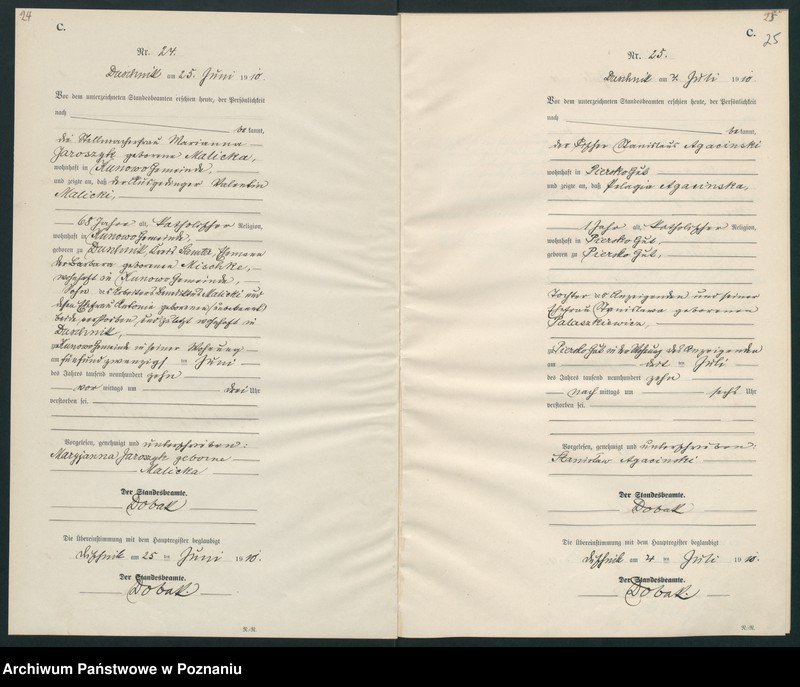 24
C.
Nr. 24.
Duschnik am 25. Juni 1910.
Vor dem unterzeichneten Standesbeamten erschien heute, der Persönlichkeit
nach
bekannt,
die Stellmacherfrau Marianna
Jaroszyk geborene Malicka,
wohnhaft in Kunowo Gemeinde,
und zeigte an, daß der Ausgedinger Valentin
Malicki,
68 Jahre alt, katholischer Religion,
wohnhaft in Kunowo Gemeinde,
geboren zu Duschnik, Kreis Samter, Ehemann
der Barbara geborenen Mischke,
wohnhaft in Kunowo Gemeinde,
Sohn des Arbeiters Benedikt Malicki und
dessen Ehefrau Antonie geborene, unbekannt
beide verstorben, und zuletzt wohnhaft in
Duschnik,
zu Kunowo Gemeinde in seiner Wohnung
am fünfundzwanzigsten Juni
des Jahres tausend neunhundert zehn
vor mittags um drei Uhr
verstorben sei.
Vorgelesen, genehmigt und unterschrieben:
Maryjanna Jaroszyk geborne
Malicka
Der Standesbeamte.
Dobak
Die Übereinstimmung mit dem Hauptregister beglaubigt
Duschnik am 25 ten Juni 1910.
Der Standesbeamte.
Dobak
R.-R.
25
C.
25
Nr. 25.
Duschnik am 4. Juli 1910.
Vor dem unterzeichneten Standesbeamten erschien heute, der Persönlichkeit
nach
bekannt,
der Stanislaus Agacinski
wohnhaft in Piersko Gut
und zeigte an, daß Pelagia Agacinska,
1 Jahr alt, katholischer Religion,
wohnhaft in Piersko Gut,
geboren zu Piersko Gut,
Tochter des Anzeigenden und seiner
Ehefrau Stanislawa geborenen
Pataszkiewicz,
zu Piersko Gut in der Wohnung des Anzeigenden
am ten Juli
des Jahres tausend neunhundert zehn
nach mittags um sechs Uhr
verstorben sei.
Vorgelesen, genehmigt und unterschrieben:
Stanisław Agacinski
Der Standesbeamte.
Dobak
Die Übereinstimmung mit dem Hauptregister beglaubigt
Duschnik am 4 ten Juli 1910.
Der Standesbeamte.
Dobak.
R.-R.
Archiwum Państwowe w Poznaniu